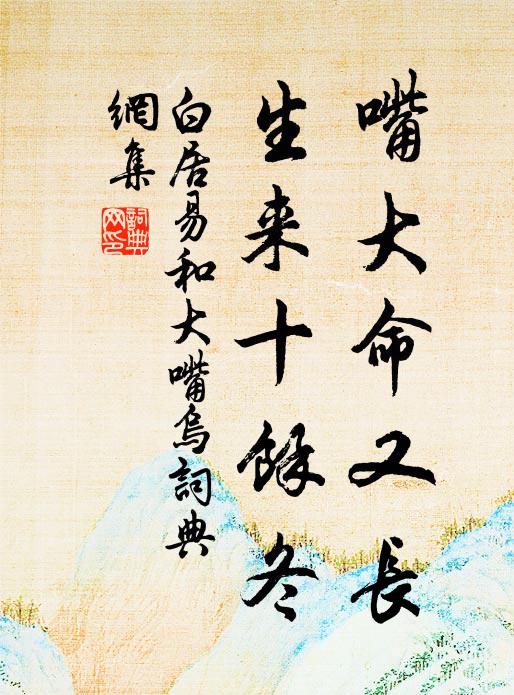 嘴大命又長
生来十餘冬
白居易和大嘴烏詞典
網集
詞典
网印